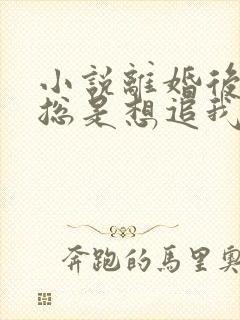 小說離婚後
總是想追我
奔跑的馬里奧